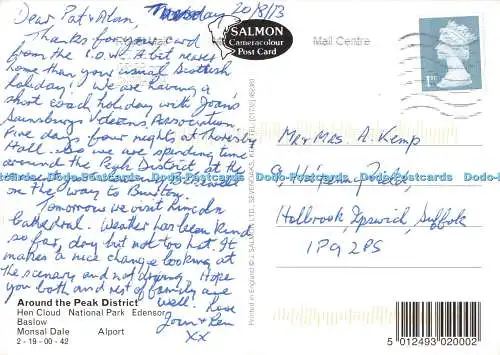 Dear Pat & Alan, Tuesday 20/8/13
Thanks for your card
from the I.O.W. A bit nearer
home than your usual Scottish
holiday! We are having a
short coach holiday with Joan's
Sainsburys Veterans Association.
Five days four nights at Thoresby
Hall. So we are spending time
around the Peak District, at the
on the way to Buxton.
Tomorrow we visit Lincoln
Cathedral. Weather has been kind
so far, dry but not too hot. It
makes a nice change looking at
the scenery and not driving. Hope
you both and rest of family are
well. Love
Joan & Ken
XX
SALMON
Cameracolour
Post Card
Mail Centre
1ST
Mr & Mrs. A. Kemp
Holbrook, Ipswich, Suffolk
IP9 2PS
Printed in England © J. SALMON LTD., SEVENOAKS, KENT. TEL: (01732) 452381
Around the Peak District
Hen Cloud National Park Edensor
Baslow
Monsal Dale Alport
2 - 19 - 00 - 42
5 012493 020002
Dodo Postcards Dodo Postcards Dodo Postcards Dodo Postcards